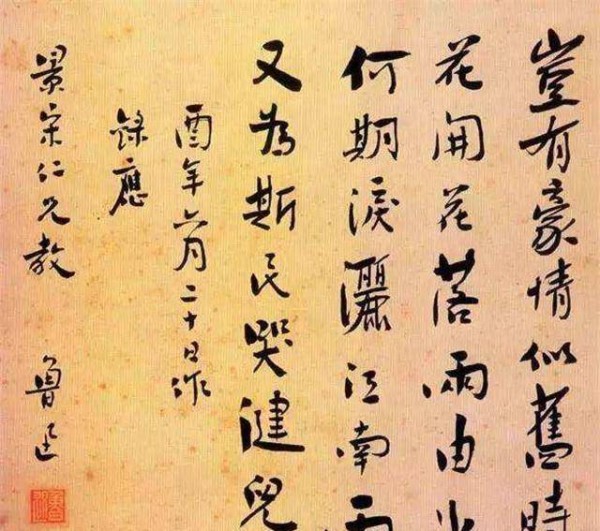 豈有豪情似舊時
花開花落兩由
何期淚灑江南雨
又為斯民哭健兒
酉年六月二十日作
錄應
景宋仁兄教
魯迅